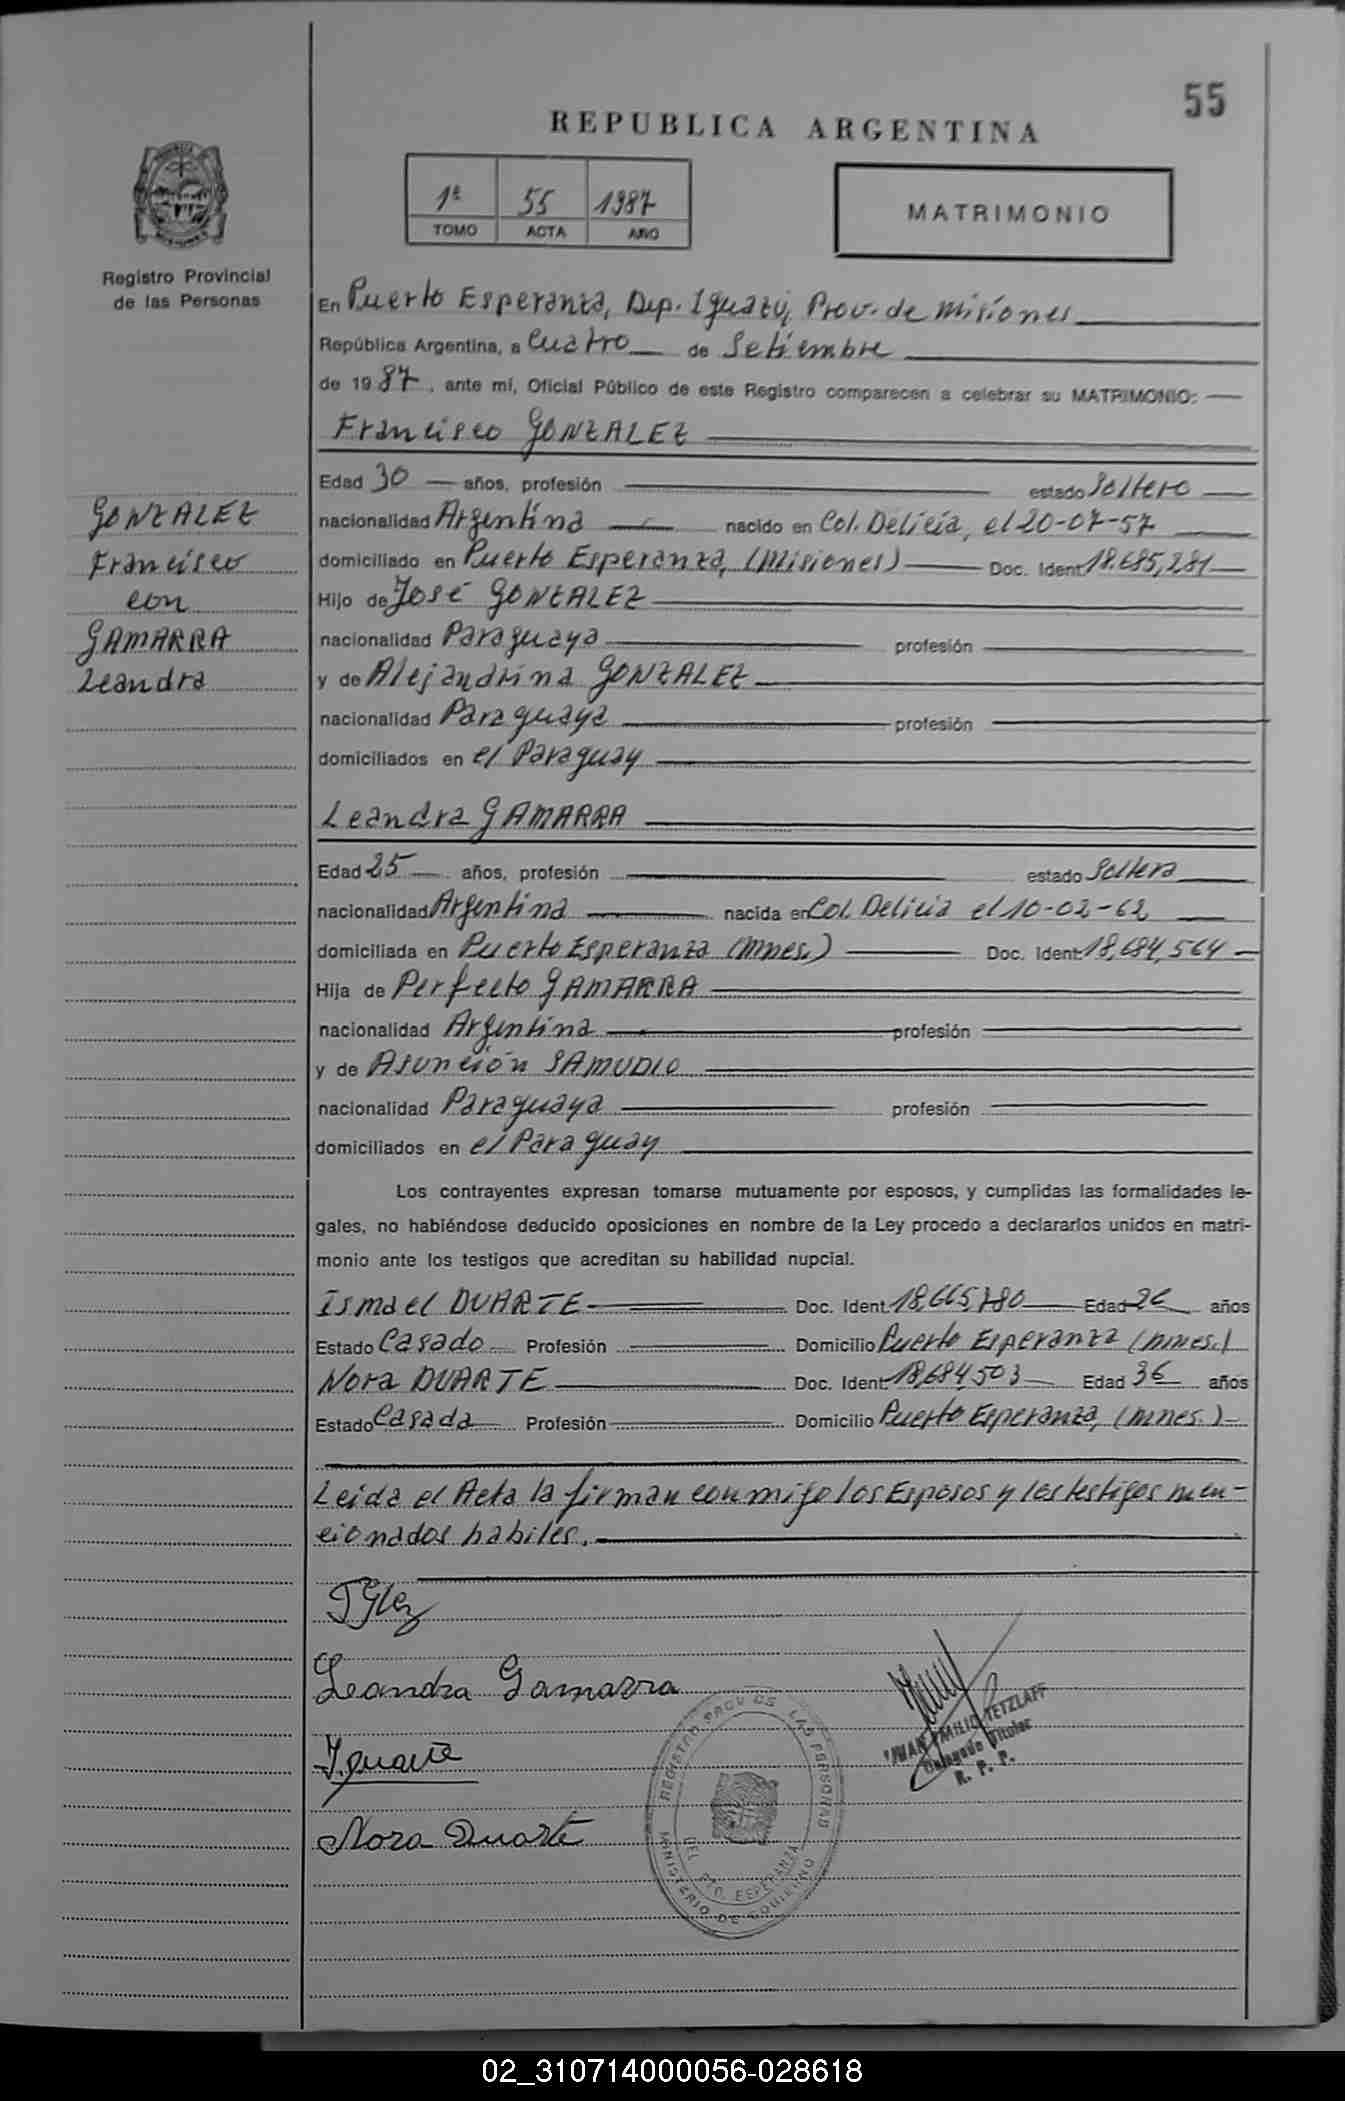 55
REPUBLICA ARGENTINA
1º 55 1987
TOMO ACTA AÑO
MATRIMONIO
Registro Provincial
de las Personas
En Puerto Esperanza, Dep. Iguazú, Prov. de Misiones
República Argentina, a Cuatro de Setiembre
de 1987, ante mí, Oficial Público de este Registro comparecen a celebrar su MATRIMONIO:
Francisco GONZALEZ
Edad 30 años, profesión estado Soltero
nacionalidad Argentina nacido en Col. Delicia, el 20-07-57
domiciliado en Puerto Esperanza, (Misiones) Doc. Ident. 18.685,281
Hijo de José GONZALEZ
nacionalidad Paraguaya profesión
y de Alejandrina GONZALEZ
nacionalidad Paraguaya profesión
domiciliados en el Paraguay
GONZALEZ
Francisco
con
GAMARRA
Leandra
Leandra GAMARRA
Edad 25 años, profesión estado Soltera
nacionalidad Argentina nacida en Col. Delicia el 10-02-62
domiciliada en Puerto Esperanza (Mnes.) Doc. Ident. 18,684,564
Hija de Perfecto GAMARRA
nacionalidad Argentina profesión
y de Asunción SAMUDIO
nacionalidad Paraguaya profesión
domiciliados en el Paraguay
Los contrayentes expresan tomarse mutuamente por esposos, y cumplidas las formalidades le-
gales, no habiéndose deducido oposiciones en nombre de la Ley procedo a declararlos unidos en matri-
monio ante los testigos que acreditan su habilidad nupcial.
Ismael DUARTE Doc. Ident. Edad 26 años
Estado Casado Profesión Domicilio Puerto Esperanza (mnes.)
Nora DUARTE Doc. Ident. 18,684,503 Edad 36 años
Estado Casada Profesión Domicilio Puerto Esperanza, (mnes.)
Leida el Acta la firman conmigo los Esposos y los testigos men-
cionados habiles.
Leandra Gamarra
I. Duarte
Nora Duarte
REGISTRO PROV. DE LAS PERSONAS
DEL. PTO. ESPERANZA
MINISTERIO DE GOBIERNO
JUAN EMILIO TETZLAFF
Delegado Titular
R. P. P.
02_310714000056-028618